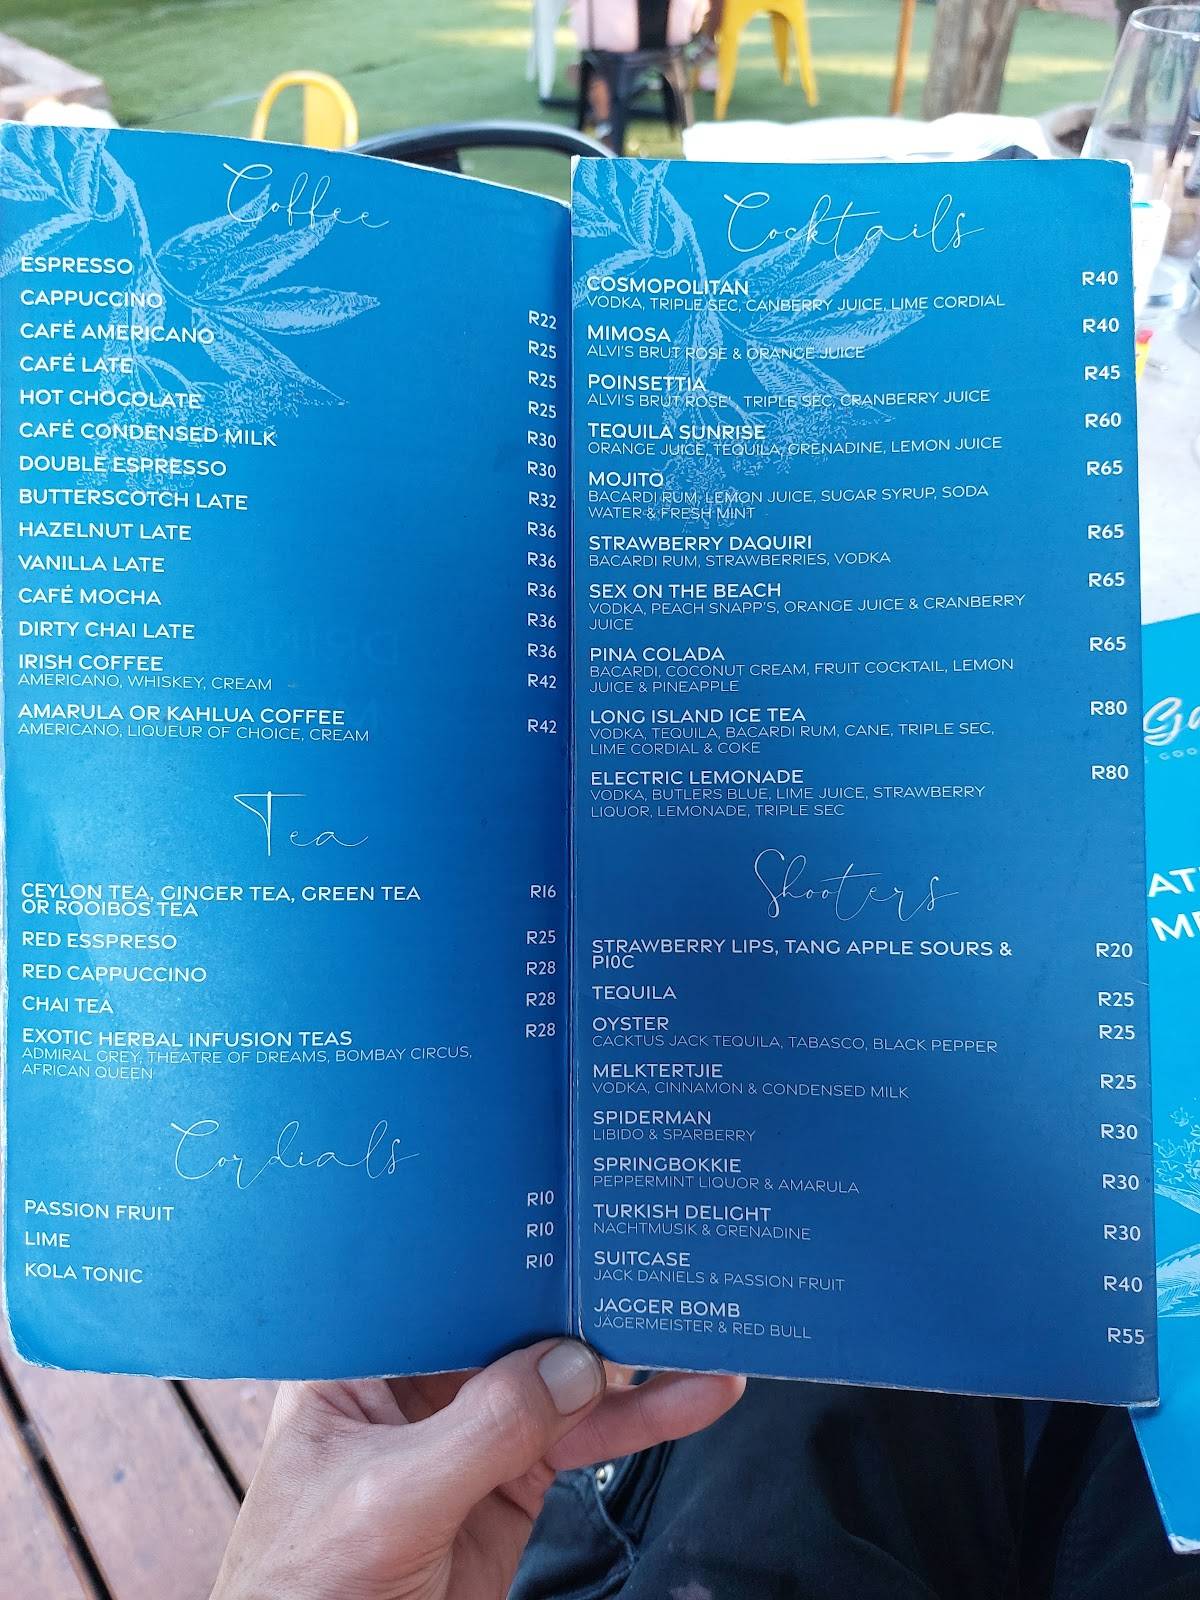 Coffee
ESPRESSO R22
CAPPUCCINO R25
CAFÉ AMERICANO R25
CAFÉ LATE R25
HOT CHOCOLATE R30
CAFÉ CONDENSED MILK R30
DOUBLE ESPRESSO R32
BUTTERSCOTCH LATE R36
HAZELNUT LATE R36
VANILLA LATE R36
CAFÉ MOCHA R36
DIRTY CHAI LATE R36
IRISH COFFEE R42
AMERICANO, WHISKEY, CREAM
AMARULA OR KAHLUA COFFEE R42
AMERICANO, LIQUEUR OF CHOICE, CREAM
Tea
CEYLON TEA, GINGER TEA, GREEN TEA R16
OR ROOIBOS TEA
RED ESSPRESO R25
RED CAPPUCCINO R28
CHAI TEA R28
EXOTIC HERBAL INFUSION TEAS R28
ADMIRAL GREY, THEATRE OF DREAMS, BOMBAY CIRCUS,
AFRICAN QUEEN
Cordials
PASSION FRUIT R10
LIME R10
KOLA TONIC R10
Cocktails
COSMOPOLITAN R40
VODKA, TRIPLE SEC, CANBERRY JUICE, LIME CORDIAL
MIMOSA R40
ALVI'S BRUT ROSE & ORANGE JUICE
POINSETTIA R45
ALVI'S BRUT ROSE', TRIPLE SEC, CRANBERRY JUICE
TEQUILA SUNRISE R60
ORANGE JUICE, TEQUILA, GRENADINE, LEMON JUICE
MOJITO R65
BACARDI RUM, LEMON JUICE, SUGAR SYRUP, SODA
WATER & FRESH MINT
STRAWBERRY DAQUIRI R65
BACARDI RUM, STRAWBERRIES, VODKA
SEX ON THE BEACH R65
VODKA, PEACH SNAPP'S, ORANGE JUICE & CRANBERRY
JUICE
PINA COLADA R65
BACARDI, COCONUT CREAM, FRUIT COCKTAIL, LEMON
JUICE & PINEAPPLE
LONG ISLAND ICE TEA R80
VODKA, TEQUILA, BACARDI RUM, CANE, TRIPLE SEC,
LIME CORDIAL & COKE
ELECTRIC LEMONADE R80
VODKA, BUTLERS BLUE, LIME JUICE, STRAWBERRY
LIQUOR, LEMONADE, TRIPLE SEC
Shooters
STRAWBERRY LIPS, TANG APPLE SOURS & R20
PI0C
TEQUILA R25
OYSTER R25
CACKTUS JACK TEQUILA, TABASCO, BLACK PEPPER
MELKTERTJIE R25
VODKA, CINNAMON & CONDENSED MILK
SPIDERMAN R30
LIBIDO & SPARBERRY
SPRINGBOKKIE R30
PEPPERMINT LIQUOR & AMARULA
TURKISH DELIGHT R30
NACHTMUSIK & GRENADINE
SUITCASE R40
JACK DANIELS & PASSION FRUIT
JAGGER BOMB R55
JÄGERMEISTER & RED BULL